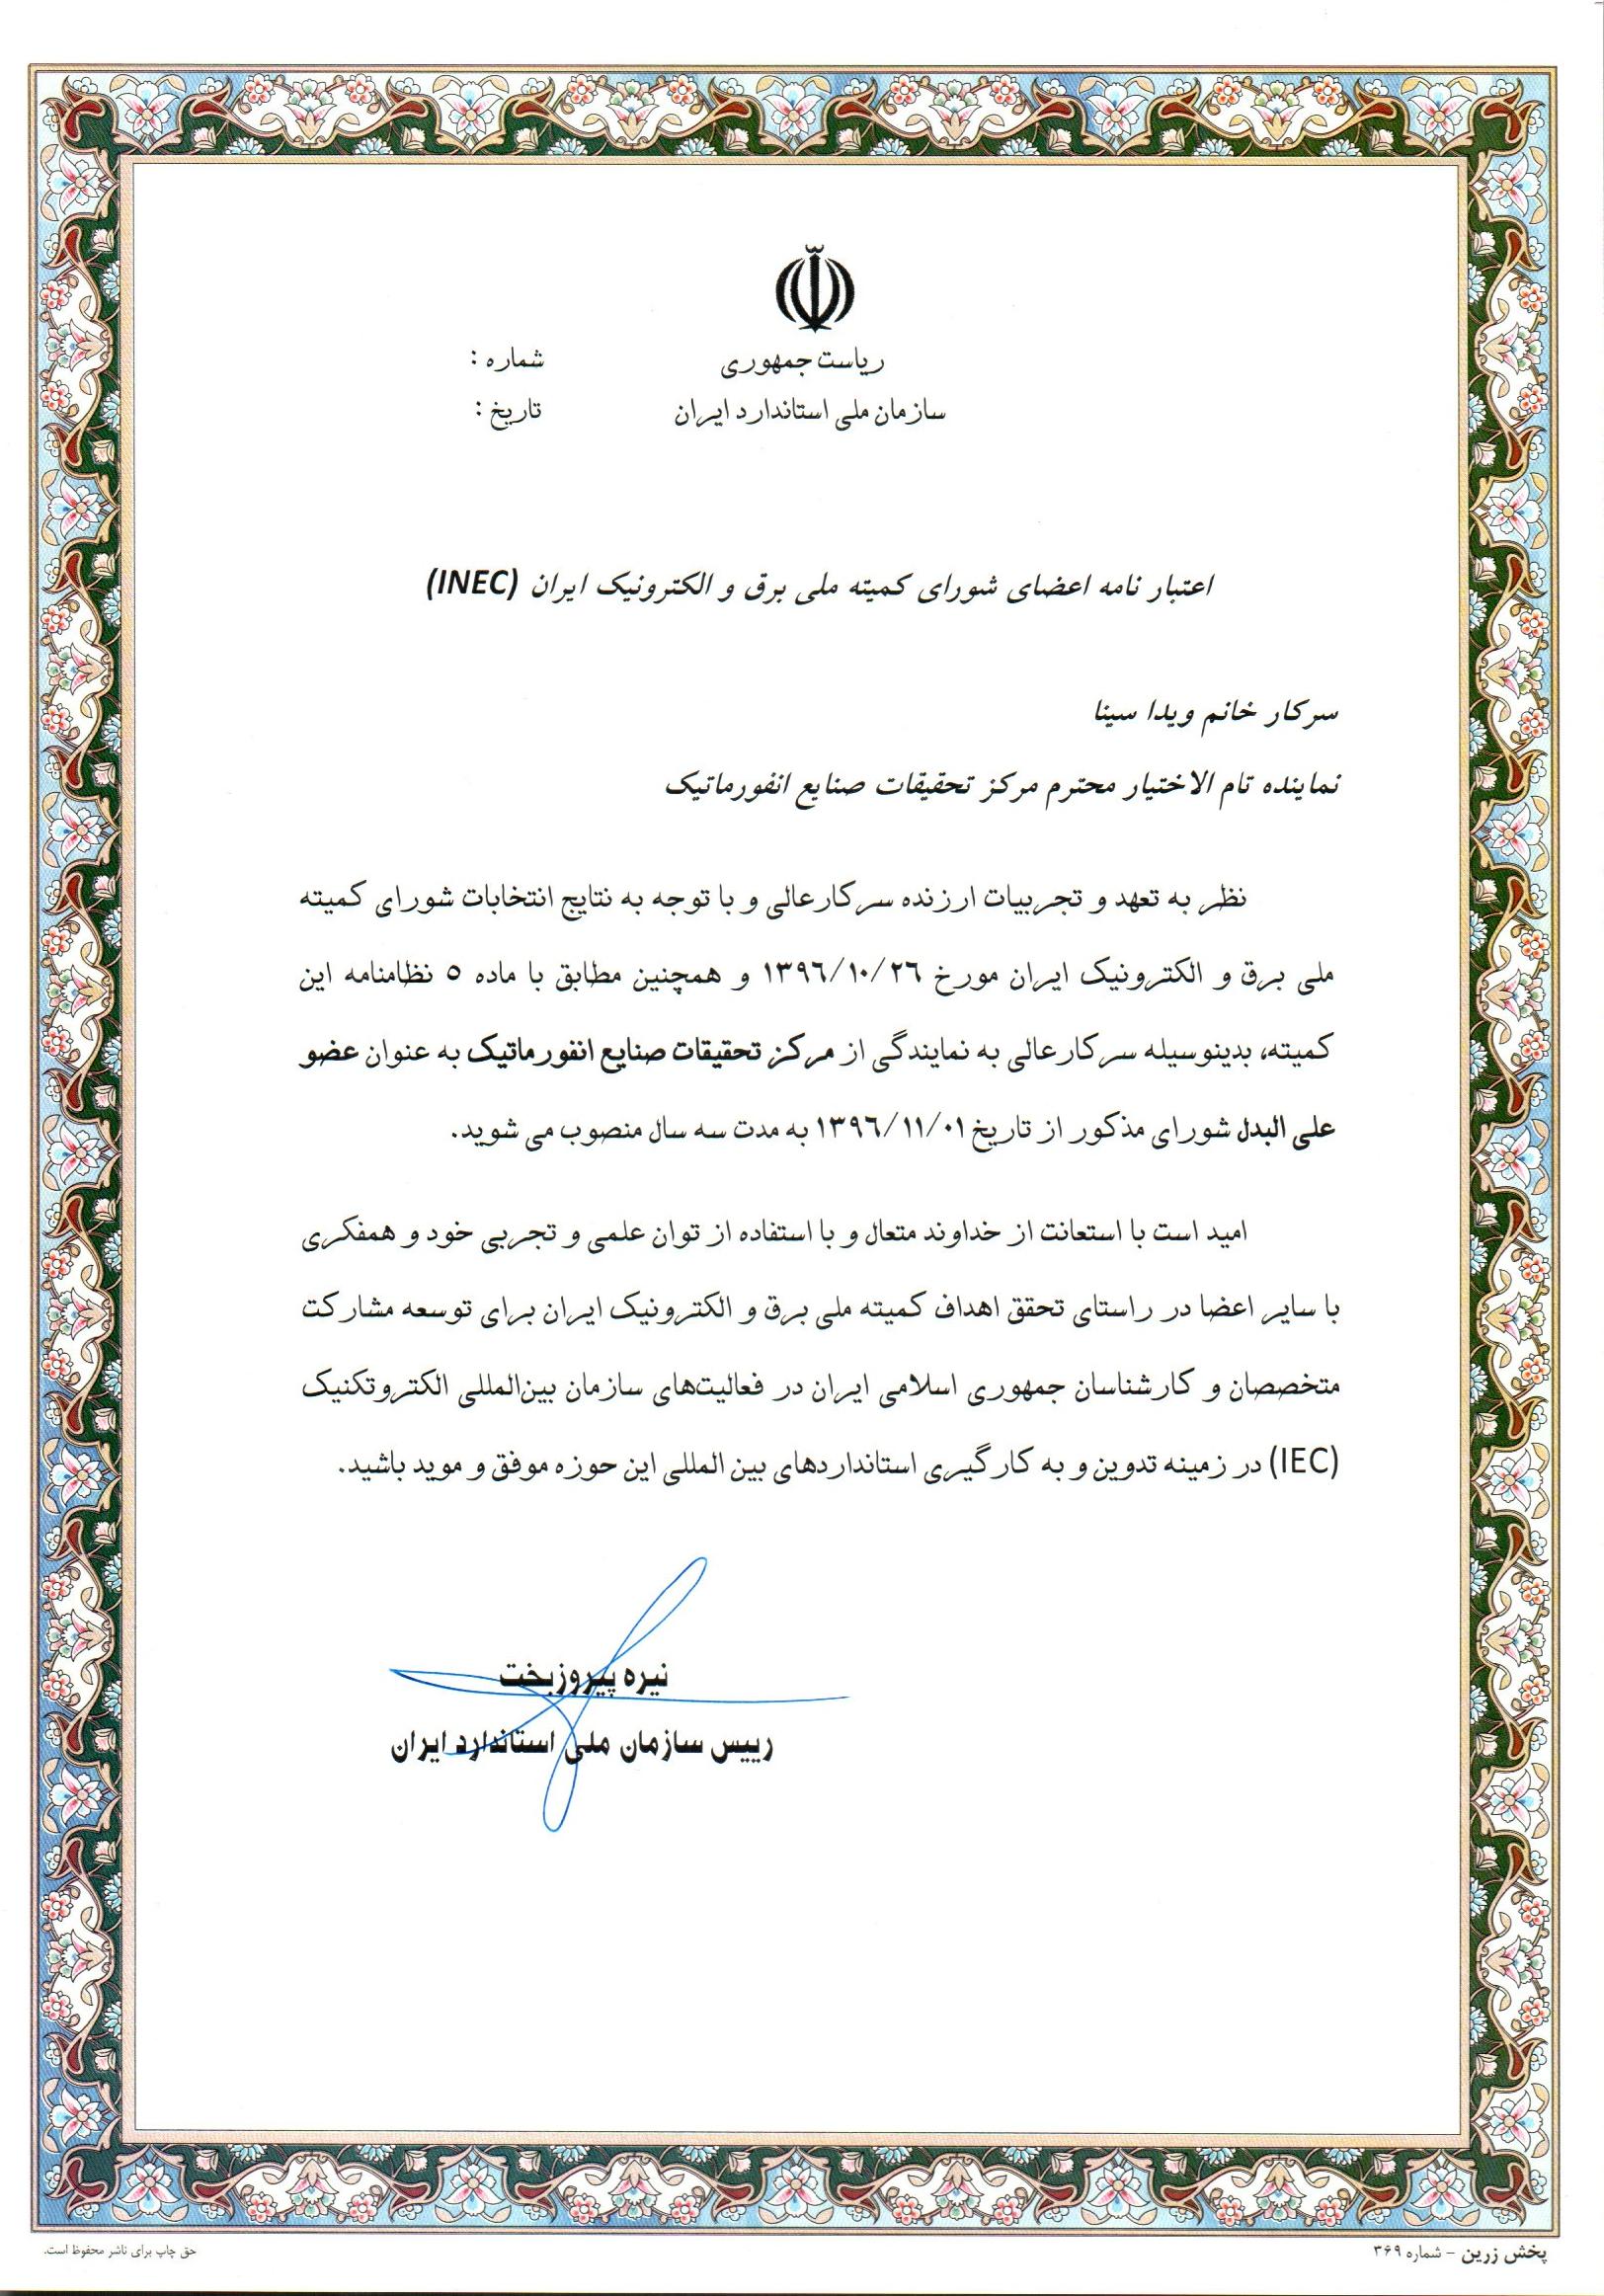 ریاست جمهوری
سازمان ملی استاندارد ایران
شماره :
تاریخ :
اعتبار نامه اعضای شورای کمیته ملی برق و الکترونیک ایران (INEC)
سرکار خانم ویدا سینا
نماینده تام الاختیار محترم مرکز تحقیقات صنایع انفورماتیک
نظر به تعهد و تجربیات ارزنده سرکارعالی و با توجه به نتایج انتخابات شورای کمیته
ملی برق و الکترونیک ایران مورخ ۱۳۹۶/۱۰/۲۶ و همچنین مطابق با ماده ۵ نظامنامه این
کمیته، بدینوسیله سرکارعالی به نمایندگی از مرکز تحقیقات صنایع انفورماتیک به عنوان عضو
علی البدل شورای مذکور از تاریخ ۱۳۹۶/۱۱/۰۱ به مدت سه سال منصوب می شوید.
امید است با استعانت از خداوند متعال و با استفاده از توان علمی و تجربی خود و همفکری
با سایر اعضا در راستای تحقق اهداف کمیته ملی برق و الکترونیک ایران برای توسعه مشارکت
متخصصان و کارشناسان جمهوری اسلامی ایران در فعالیت‌های سازمان بین‌المللی الکتروتکنیک
(IEC) در زمینه تدوین و به کارگیری استانداردهای بین المللی این حوزه موفق و موید باشید.
نیره پیروزبخت
رییس سازمان ملی استاندارد ایران
پخش زرین - شماره ۳۶۹
حق چاپ برای ناشر محفوظ است.